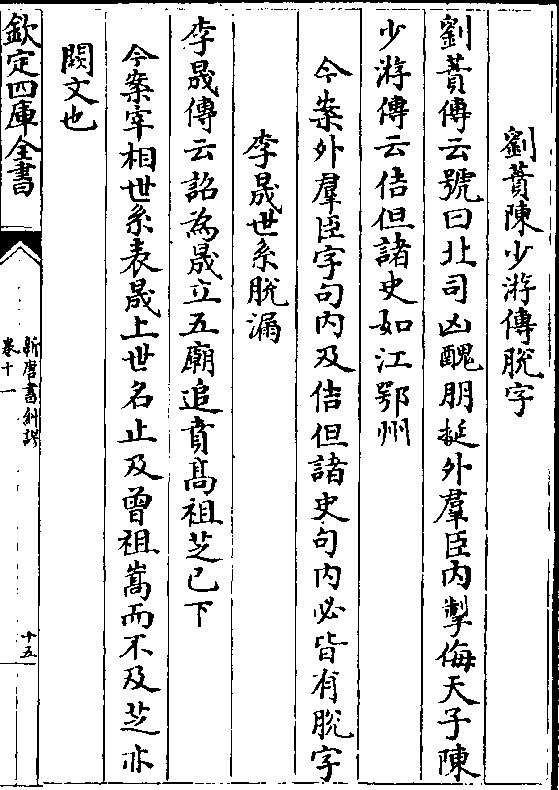 劉蕡陳少游傳脫字
劉蕡傳云號曰北司凶醜朋挻外羣臣內掣侮天子陳
少游傳云佶但諸史如江鄂州
今案外羣臣字句內及佶但諸史句內必皆有脫字
李晟世系脫漏
李晟傳云詔為晟立五廟追賁高祖芝已下
今案宰相世系表晟上世名止及曾祖嵩而不及芝亦
闕文也
欽定四庫全書
新唐書糾謬
卷十一
十五